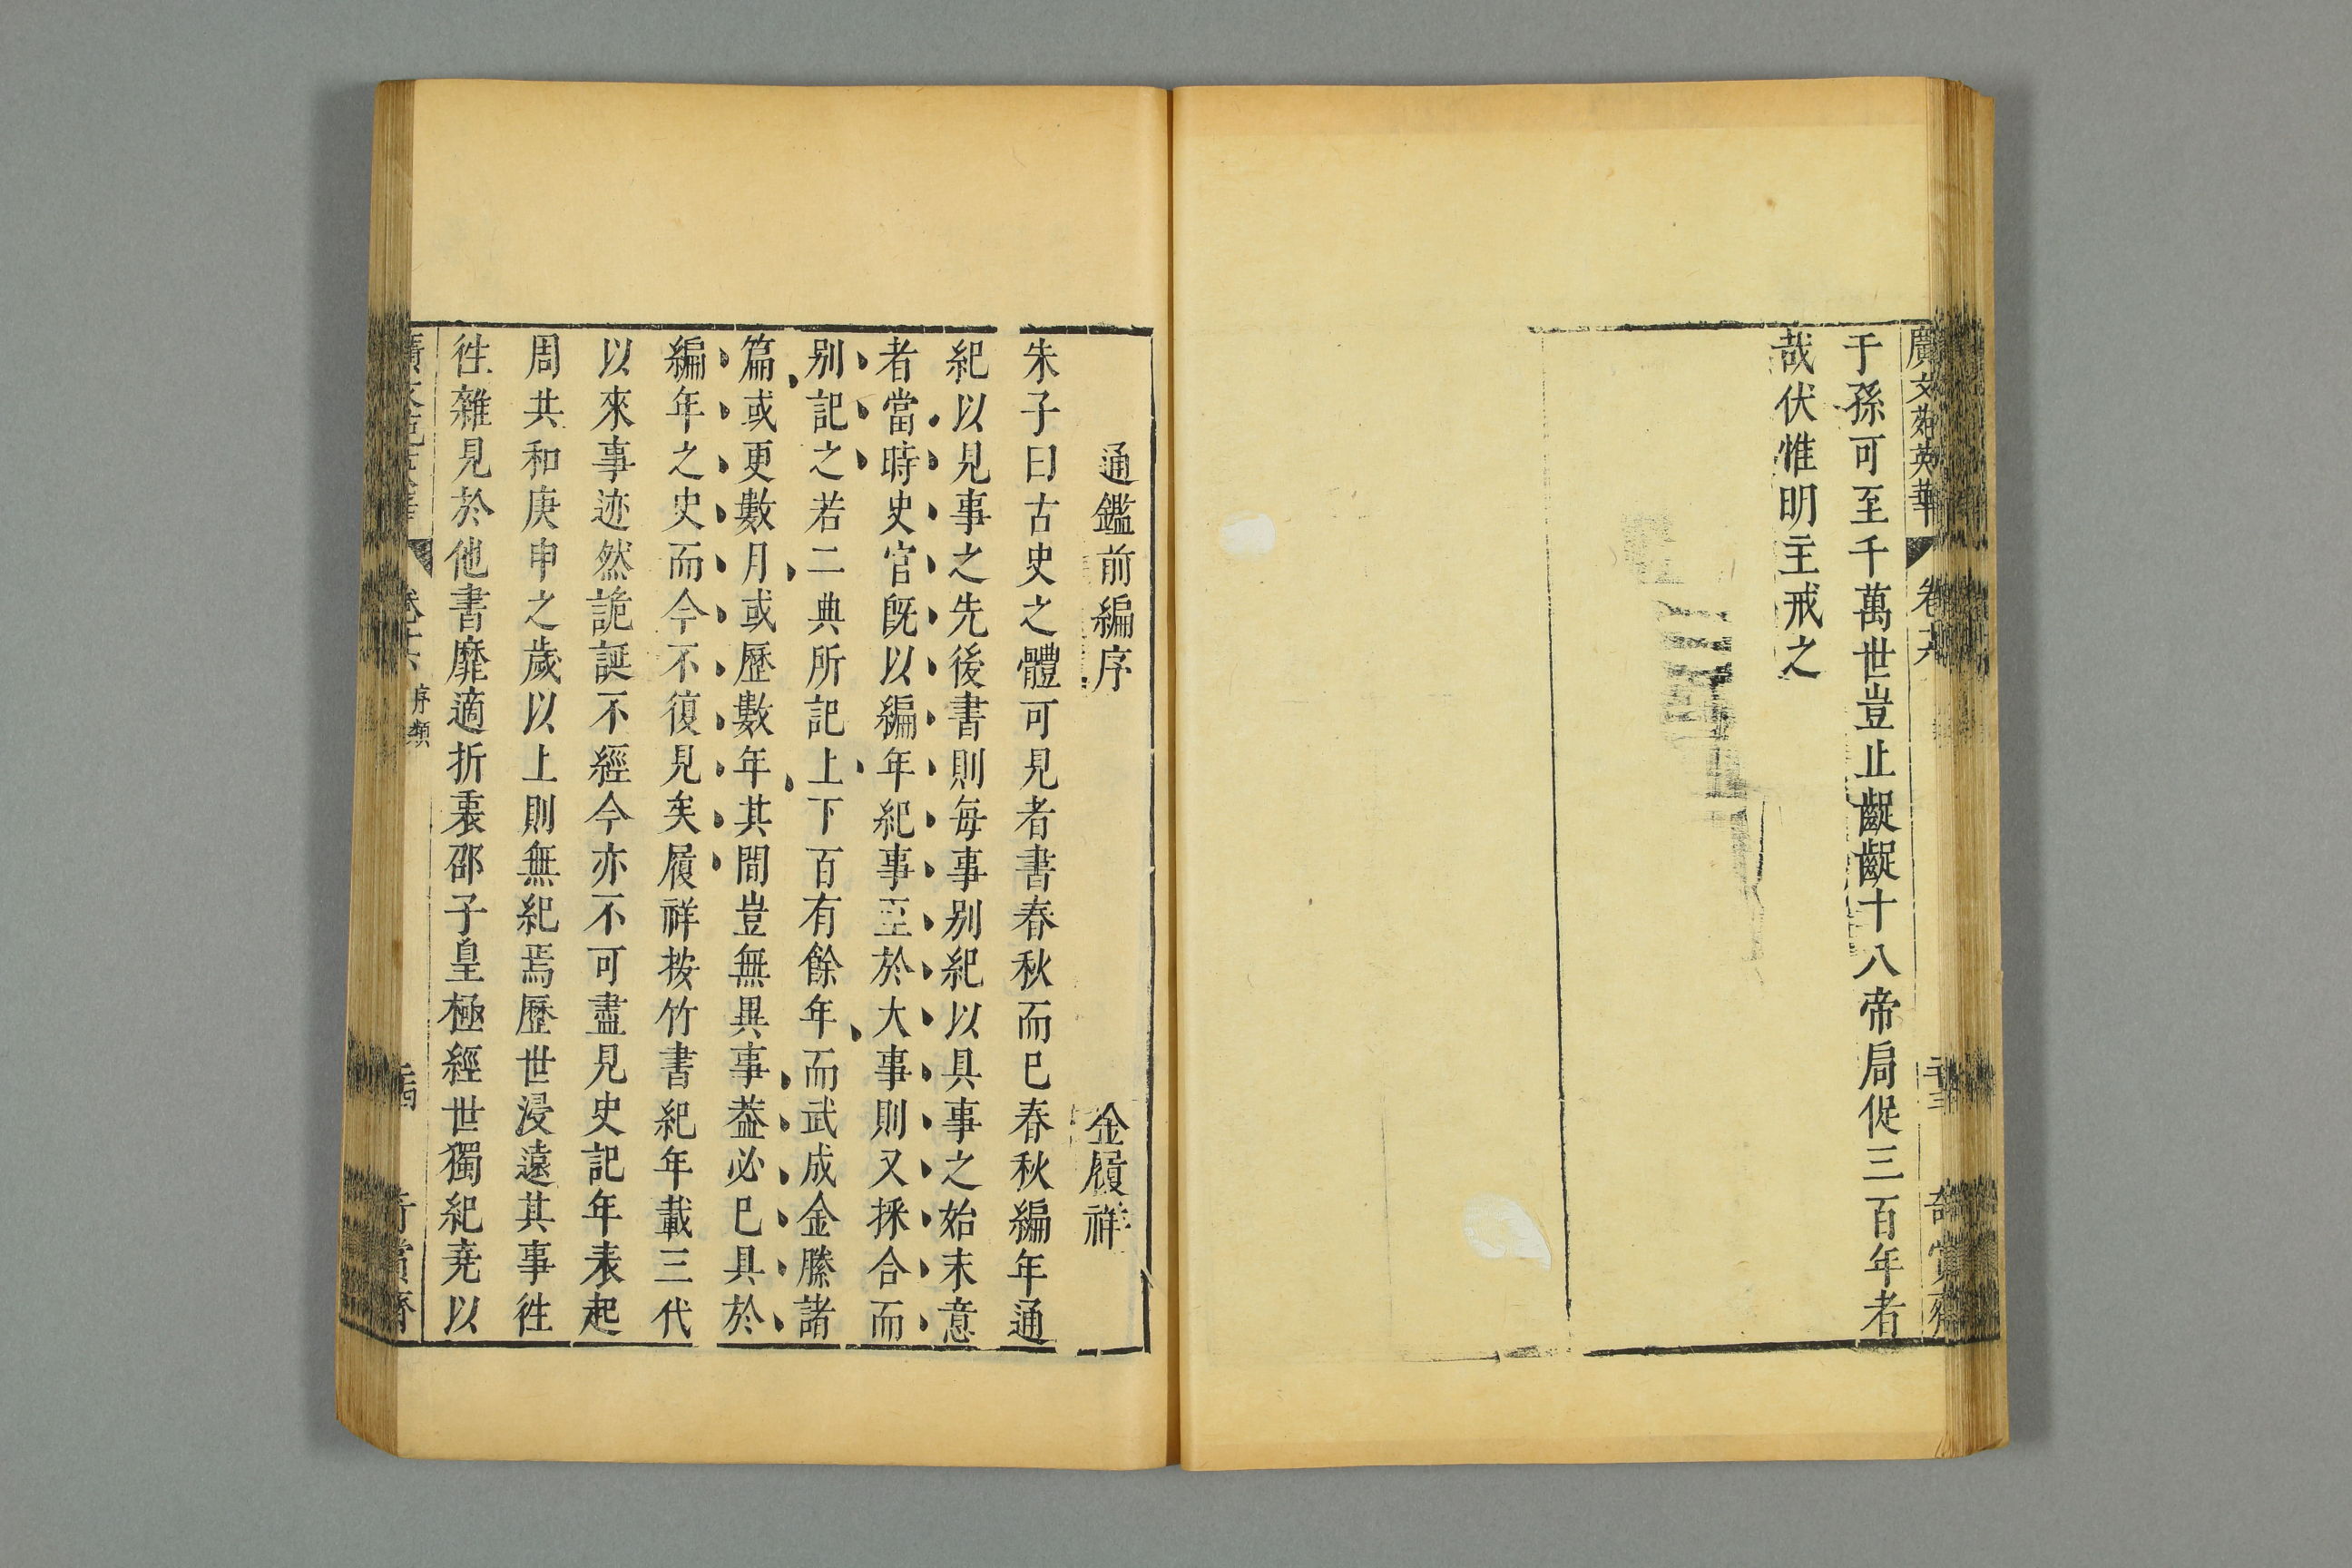 廣文苑英華
卷六
二十三
奇賞齋
于孫可至千萬世豈止齪齪十八帝局促三百年者
哉伏惟明主戒之
通鑑前編序
金履祥
朱子曰古史之體可見者書春秋而已春秋編年通
紀以見事之先後書則每事别紀以具事之始末意
者當時史官既以編年紀事至於大事則又採合而
别記之若二典所記上下百有餘年而武成金縢諸
篇或更數月或歷數年其間豈無異事葢必已具於
編年之史而今不復見矣履祥按竹書紀年載三代
以來事迹然詭誕不經今亦不可盡見史記年表起
周共和庚申之歲以上則無紀焉歷世浸遠其事徃
徃雜見於他書靡適折衷邵子皇極經世獨紀堯以
序類